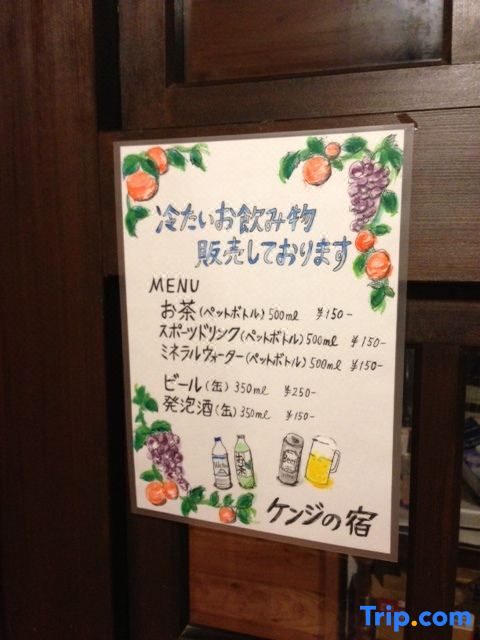 冷たいお飲み物
販売しております
MENU
お茶(ペットボトル)500ml ¥150-
スポーツドリンク(ペットボトル)500ml ¥150-
ミネラルウォーター(ペットボトル)500ml ¥150-
ビール(缶)350ml ¥250-
発泡酒(缶)350ml ¥150-
お茶
Beer
ケンジの宿
Trip.com